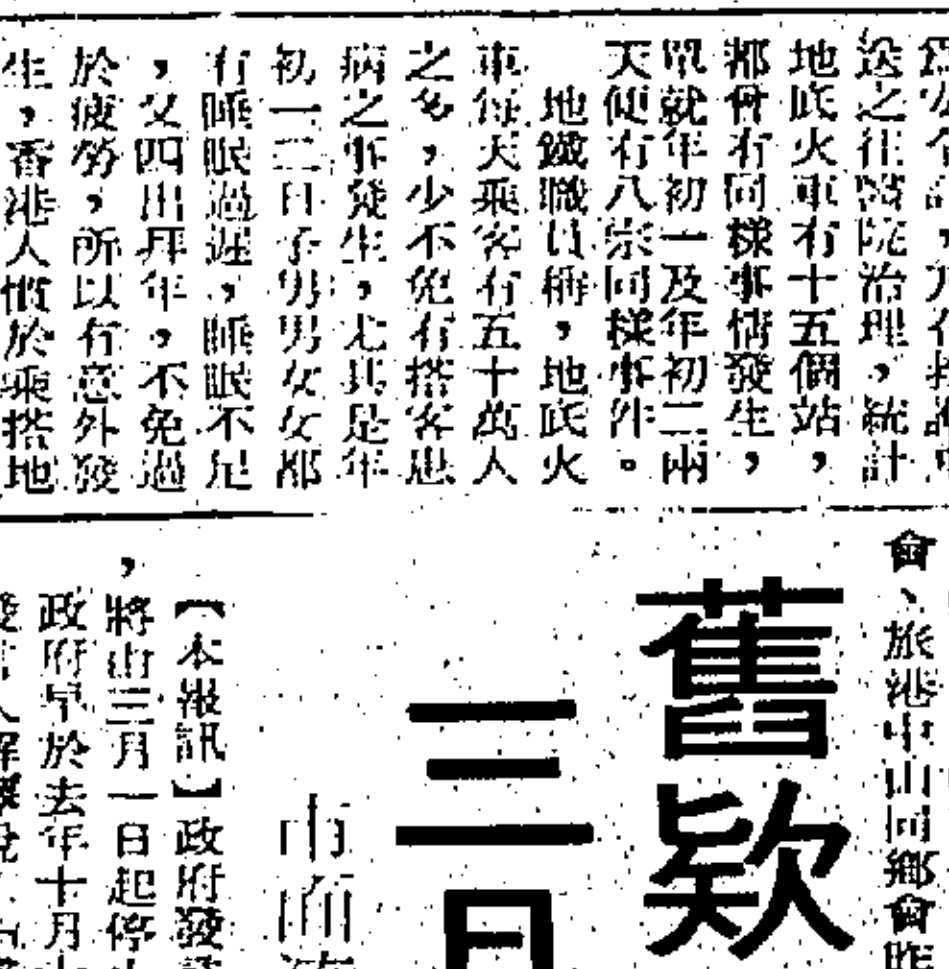 送之往醫院治理，統計
地底火車有十五個站，
都會有同樣事情發生，
單就年初一及年初二兩
天便有八宗同樣事件。
地鐵職員稱，地底火
車每天乘客有五十萬人
之多，少不免有搭客患
病之事發生，尤其是年
初一二日子男男女女都
有睡眠過遲，睡眠不足
，又四出拜年，不免過
於疲勞，所以有意外發
生，香港人慣於乘搭地
會、旅港中山同鄉會昨
舊欵
三日
市面
【本報訊】政府發
，將由三月一日起停
政府早於去年十月